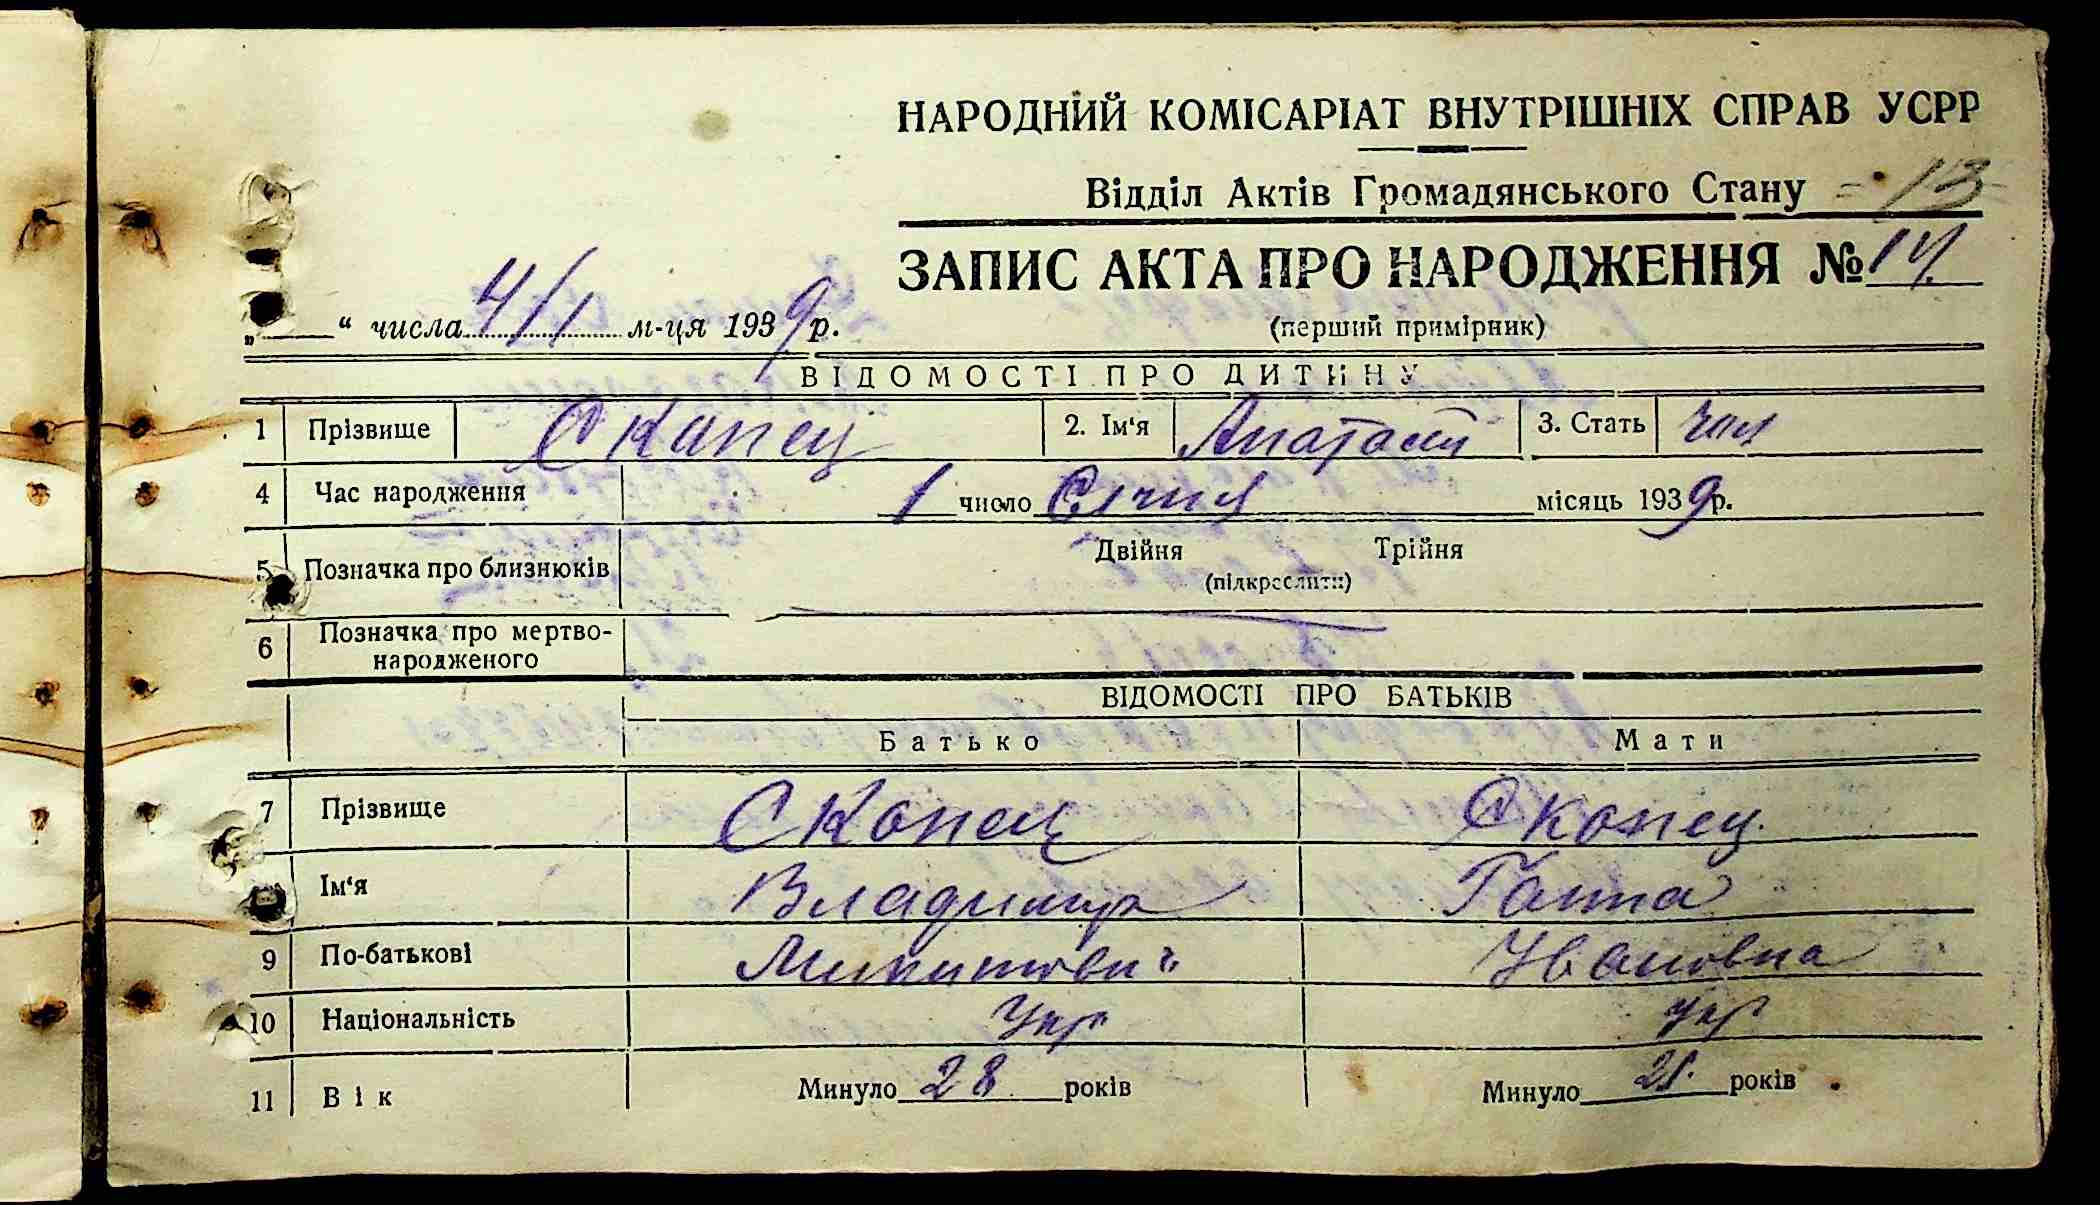 НАРОДНИЙ КОМІСАРІАТ ВНУТРІШНІХ СПРАВ УСРР
Відділ Актів Громадянського Стану 13
ЗАПИС АКТА ПРО НАРОДЖЕННЯ № 14.
„ “ числа 4/I м-ця 1939 р.
(перший примірник)
ВІДОМОСТІ ПРО ДИТИНУ
1 Прізвище Скопец 2. Ім‘я 3. Стать чол
4 Час народження 1 число Січня місяць 1939 р.
5 Позначка про близнюків Двійня Трійня
(підкреслити)
6 Позначка про мертво-
народженого
ВІДОМОСТІ ПРО БАТЬКІВ
Батько Мати
7 Прізвище Скопец Скопец
Ім‘я Владимир Ганна
9 По-батькові Ивановна
10 Національність Укр Укр
11 Вік Минуло 28 років Минуло років